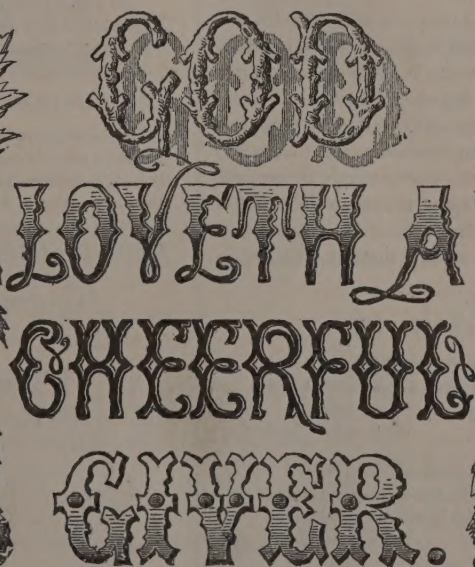 GOD
LOVETH A
CHEERFUL
GIVER.